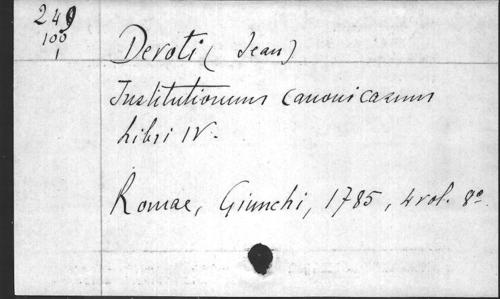 249
100
1
Devoti (Jean)
Institutionum canonicarum
Libri IV.
Romae, Giunchi, 1785, 4 vol. 8°.